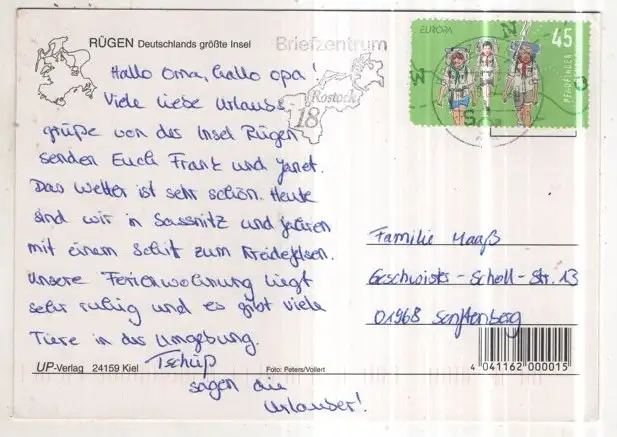 RÜGEN Deutschlands größte Insel
Hallo Oma, hallo Opa!
Viele liebe Urlaubs-
grüße von der Insel Rügen
senden Euch Frank und Janet.
Das Wetter ist sehr schön. Heute
sind wir in Sassnitz und fahren
mit einem Schif zum Kreidefelsen.
Unsere Ferienwohnung liegt
sehr ruhig und es gibt viele
Tiere in der Umgebung.
Tschüß
sagen die
Urlauber!
UP-Verlag 24159 Kiel
Foto: Peters/Vollert
Briefzentrum
Rostock
18
EUROPA
45
PFADFINDER
N
W
O
S
Familie Maaß
Geschwister-Scholl-Str. 13
01968 Senftenberg
4 041162 000015